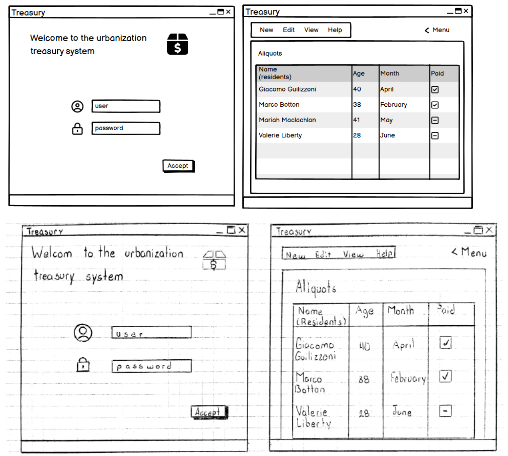 Treasury
Welcome to the urbanization
treasury system
$
user
password
Accept
Treasury
New Edit View Help
< Menu
Aliquots
Name
(residents) Age Month Paid
Giacomo Guilizzoni 40 April
Marco Botton 38 February
Mariah Maclachlan 41 May
Valerie Liberty 28 June
Treasury
Welcom to the urbanization
treasury system
$
user
password
Accept
Treasury
New Edit View Help
< Menu
Aliquots
Name Age Month Paid
(Residents)
Giacomo 40 April
Guilizzoni
Marco 38 February
Botton
Valerie 28 June
Liberty